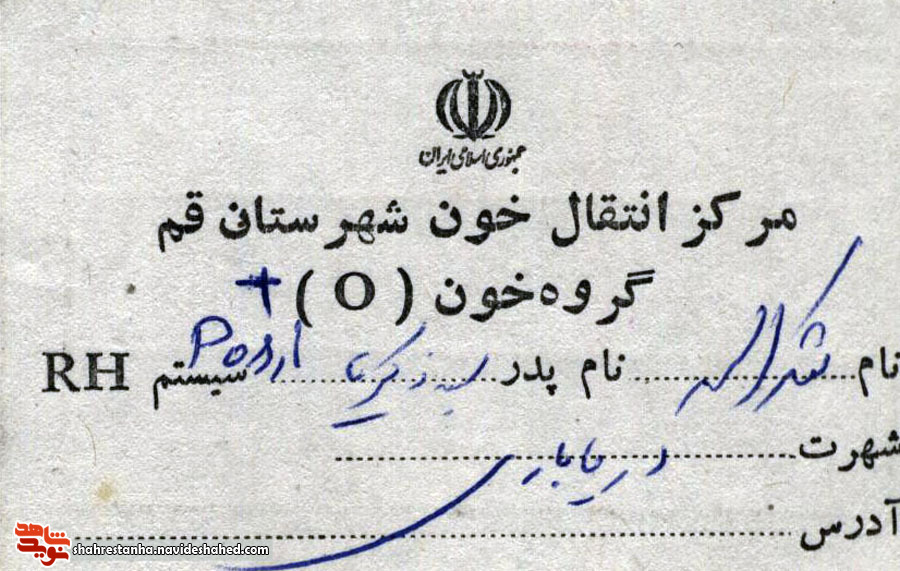 جمهوری اسلامی ایران
مرکز انتقال خون شهرستان قم
گروه خون ( O ) +
نام شکراله نام پدر سید زکریا سیستم RH Pos
شهرت دریاباری
آدرس
نوید شاهد shahrestanha.navideshahed.com